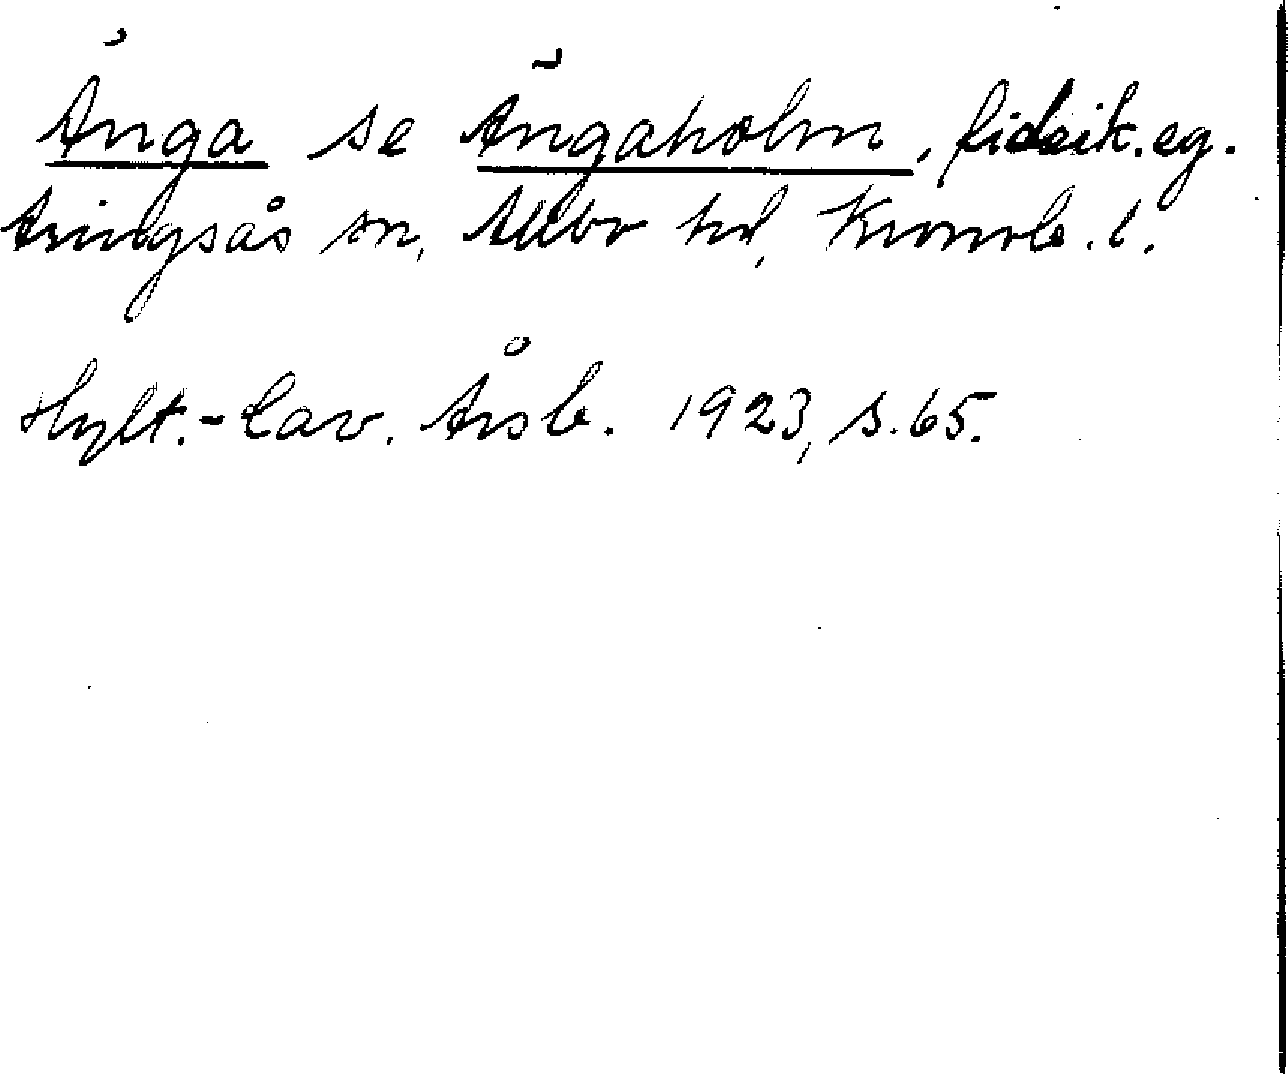 Änga se Ängaholm, fideik. eg.
Aringsås sn, Allbo hd, Kronob. l.
Hylt.-Cav. Årsb. 1923, s. 65.